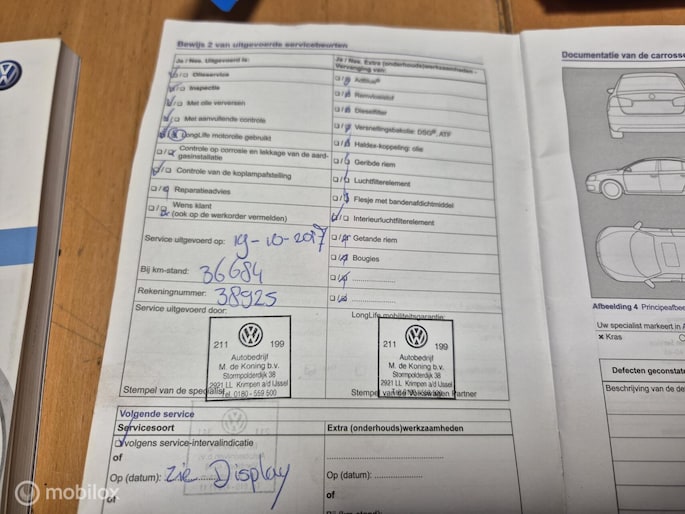 Bewijs 2 van uitgevoerde servicebeurten
Ja / Nee. Uitgevoerd is:
Olieservice
Inspectie
Met olie verversen
Met aanvullende controle
LongLife motorolie gebruikt
Controle op corrosie en lekkage van de aard-
gasinstallatie
Controle van de koplampafstelling
Reparatieadvies
Wens klant
(ook op de werkorder vermelden)
Service uitgevoerd op: 19-10-2017
Bij km-stand: 36684
Rekeningnummer: 38925
Service uitgevoerd door:
211 199
Autobedrijf
M. de Koning b.v.
Stormpolderdijk 38
2921 LL Krimpen a/d IJssel
Tel. 0180 - 559 500
Stempel van de specialist
Ja / Nee. Extra (onderhouds)werkzaamheden -
Vervanging van:
AdBlue®
Remvloeistof
Dieselfilter
Versnellingsbakolie: DSG®, ATF
Haldex-koppeling: olie
Geribde riem
Luchtfilterelement
Flesje met bandenafdichtmiddel
Interieurluchtfilterelement
Getande riem
Bougies
LongLife mobiliteitsgarantie:
211 199
Autobedrijf
M. de Koning b.v.
Stormpolderdijk 38
2921 LL Krimpen a/d IJssel
Stempel van de Volkswagen Partner
Volgende service
Servicesoort
Extra (onderhouds)werkzaamheden
volgens service-intervalindicatie
of
Op (datum): zie Display
of
Op (datum):
of
Documentatie van de carrosse
Afbeelding 4 Principeafbee
Uw specialist markeert in A
× Kras
Defecten geconstate
Beschrijving van de de
mobilox